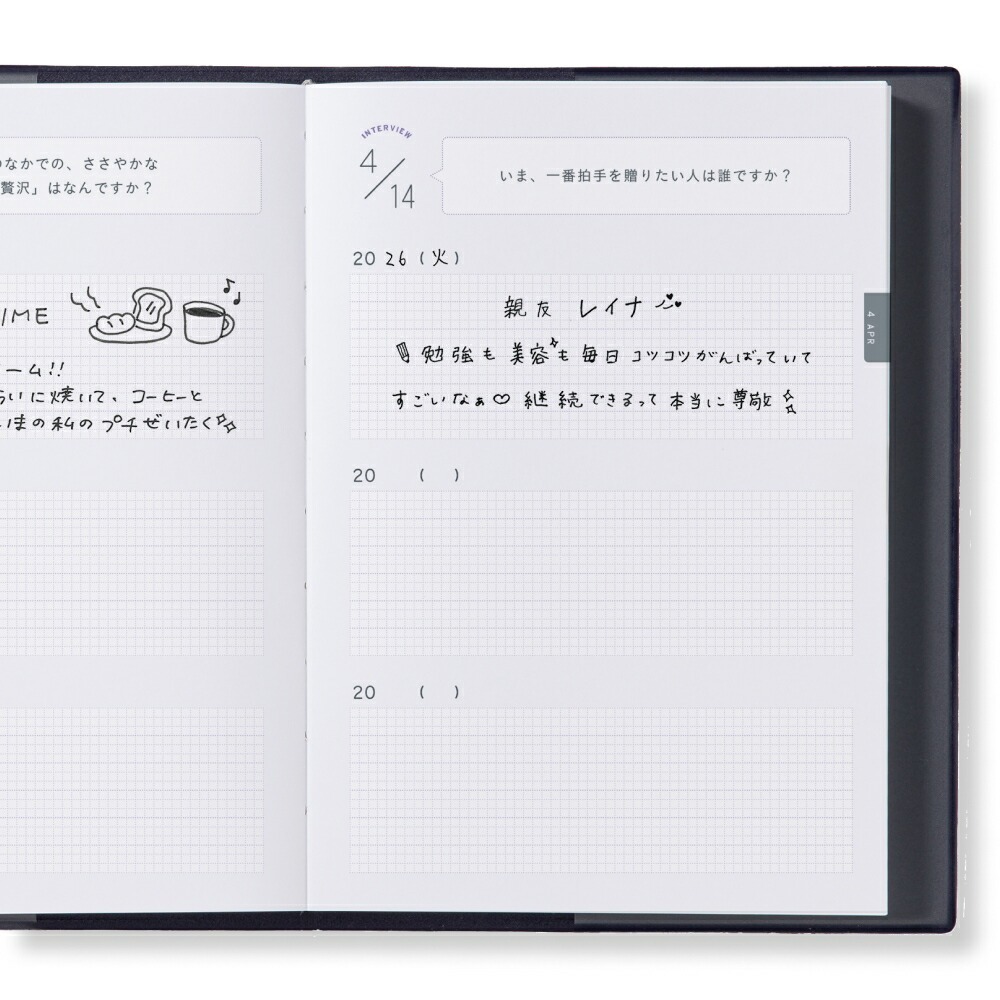 のなかでの、ささやかな
贅沢」はなんですか？
IME
ーム!!
らいに焼いて、コーヒーと
いまの私のプチぜいたく
INTERVIEW
4/14
いま、一番拍手を贈りたい人は誰ですか？
2026(火)
親友 レイナ
勉強も美容も毎日コツコツがんばっていて
すごいなぁ♡継続できるって本当に尊敬
20 ( )
20 ( )
4 APR